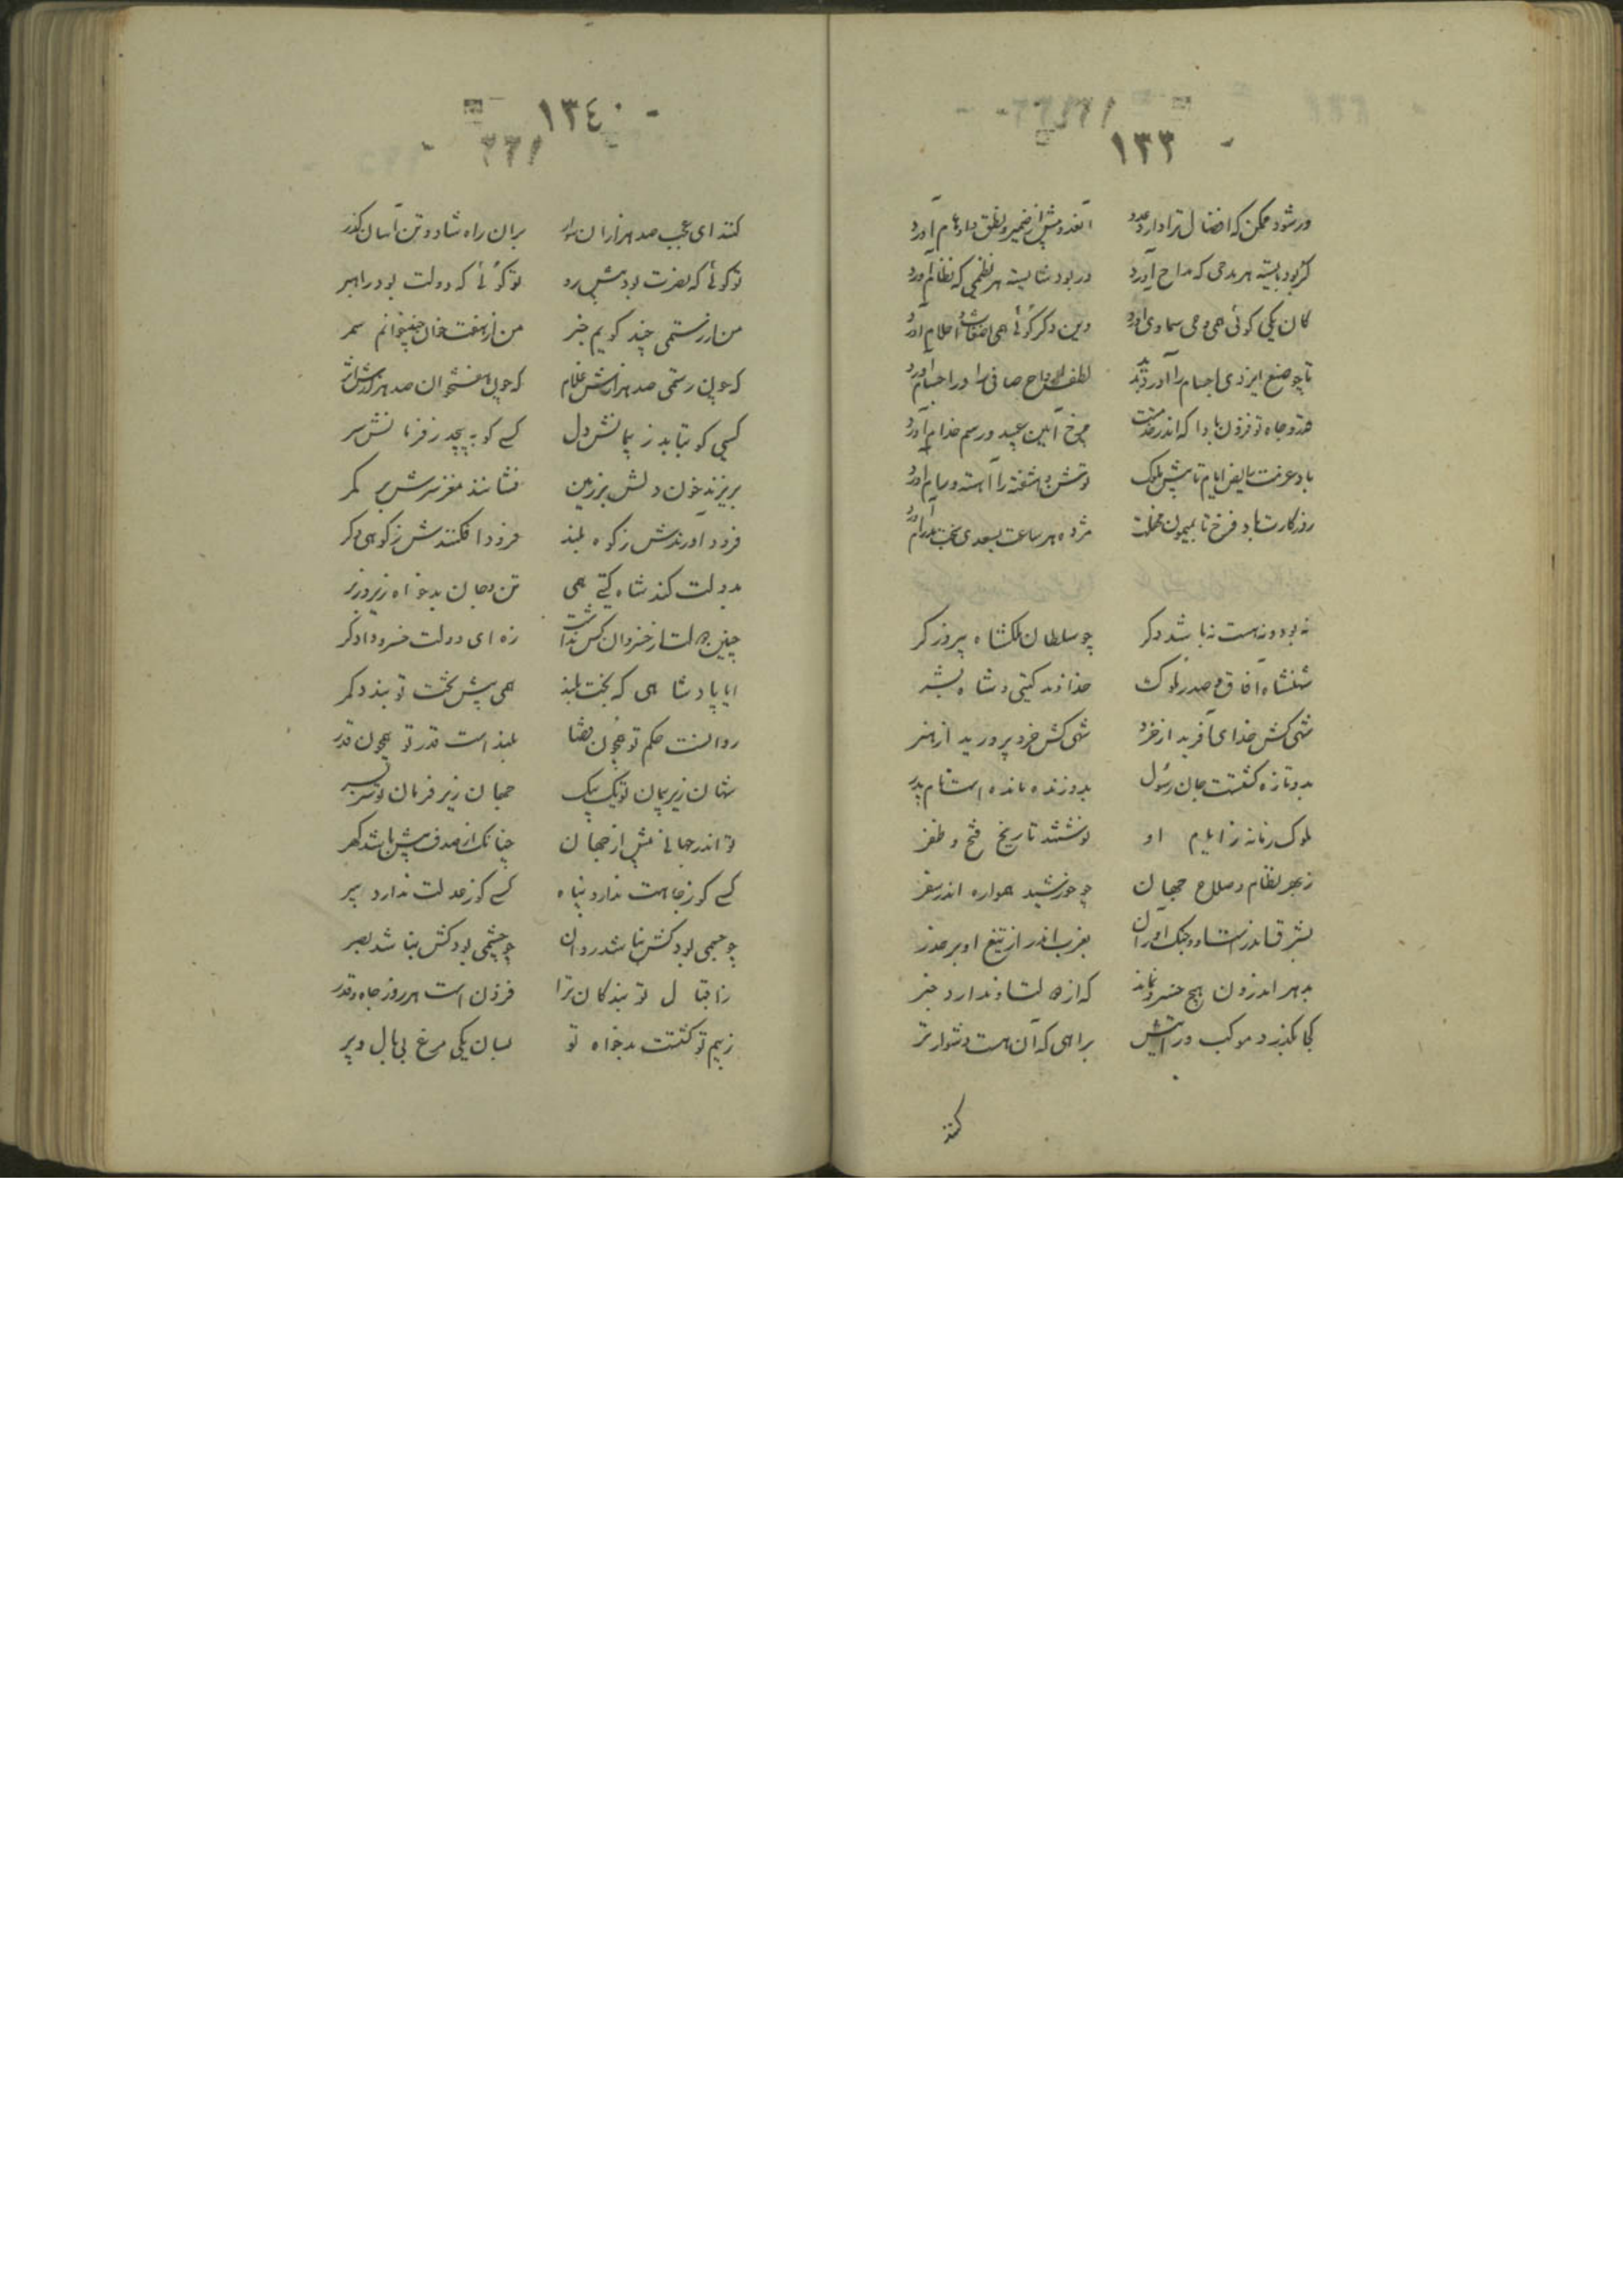 ۱۳۳
ورشود ممکن که افضال ترا دارد عدد آنقدر پیش از ضمیر و نطق و اوهام آورد
گر بود بایسته هر مدحی که مداح آورد در بود شایسته هر نظمی که نظام آورد
کان یکی گوئی همی وحی سماوی آورد وین دگر گوئی همی اضغاث احلام آورد
تا چو صنع ایزدی اجسام را آورد پدید لطف ارواح صافی را در اجسام آورد
قدر و جاه تو فزون بادا که اندر خدمتت چرخ آیین عبید و رسم خدام آورد
باد عزمت رایض ایام تا پیش ملوک توسن و آشفته را آهسته و رام آورد
روزگارت باد فرخ تا بمیمون مجلست مژده هر ساعت بسعدی بخت پدرام آورد
نه بود و نه هست نه باشد دگر چو سلطان ملکشاه پیروزگر
شهنشاه آفاق و صدر ملوک خداوند گیتی و شاه بشر
شهی کش خدای آفرید از خرد شهی کش خرد پرورید از هنر
بدو تازه گشتست جان رسول بدو زنده مانده است نام پدر
ملوک زمانه ز ایام او نوشتند تاریخ فتح و ظفر
ز بهر نظام و صلاح جهان چو خورشید همواره اندر سفر
بشرق اندرست او و جنگ آوران بغرب اندر از تیغ او بر حذر
بدهر اندرون هیچ خسرو نماند که از دولت او ندارد خبر
کجا بگذرد موکب و رایتش براهی که آن هست دشوارتر
کنند
۱۳٤
کنند ای عجب صد هزاران سوار بران راه شاد و تن آسان گذر
تو گوئی که نصرت بود پیش رو تو گوئی که دولت بود راهبر
من از رستمی چند گویم خبر من از هفت خوان چند خوانم سمر
که چون رستمی صد هزارش غلام که چون هفتخوان صد هزارش اثر
کسی کو بتابد ز پیمانش دل کسی کو بپیچد ز فرمانش سر
بریزند خون دلش بر زمین فشانند مغز سرش بر کمر
فرود آورندش ز کوه بلند فرود افکنندش ز کوهی دگر
بدولت کند شاه گیتی همی تن و جان بدخواه زیر و زبر
چنین دولت از خسروان کس نداشت زه ای دولت خسرو دادگر
ایا پادشاهی که بخت بلند همی پیش تخت تو بندد کمر
روانست حکم تو همچون قضا بلند است قدر تو همچون قدر
شهان زیر پیمان تو یک بیک جهان زیر فرمان تو سر بسر
تو اندر جهانی و بیش از جهان چنانک از صدف بیش باشد گهر
کسی کو ز جاهت ندارد پناه کسی کو ز عدلت ندارد سپر
چو جسمی بود کش نباشد روان چو چشمی بود کش نباشد بصر
ز اقبال تو بندگان ترا فزون است هر روز جاه و قدر
ز بیم تو گشتست بدخواه تو بسان یکی مرغ بی بال و پر